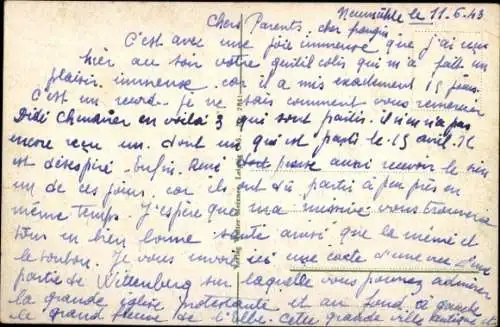 Neumühle le 11.6.43
Chers Parents, cher frangin
C'est avec une joie immense que j'ai reçu
hier au soir votre gentil colis qui m'a fait un
plaisir immense car il a mis exactement 15 jours.
C'est un record. je ne sais comment vous remercier
Dédé en voilà 3 qui sont partis. il n'en a pas
encore reçu un. dont un qui est parti le 15 avril. Il
est désespéré. Enfin. René doit aussi recevoir le sien
un de ces jours. car ils ont dû partir à peu près en
même temps. J'espère que ma missive vous trouvera
tous en bien bonne santé ainsi que la mémé et
le tonton. Je vous envoie ici une carte d'une vue d'une
partie de Wittenberg sur laquelle vous pouvez admirer
la grande église Protestante et au fond, à gauche
le grand fleuve de l'Elbe. Cette grande ville antique